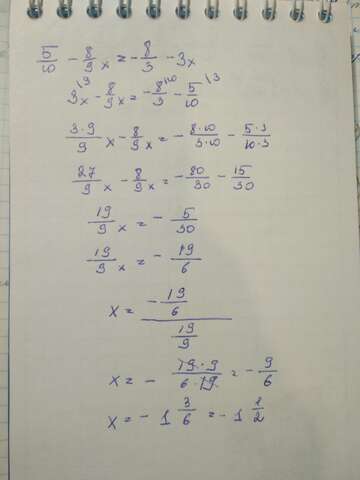 5/10 - 8/9 x = - 8/3 - 3x
3x\3 - 8/9 x = - 8/3\10 - 5/10\3
3·9/9 x - 8/9 x = - 8·10/3·10 - 5·3/10·3
27/9 x - 8/9 x = - 80/30 - 15/30
19/9 x = - 5/30
19/9 x = - 19/6
x = (- 19/6)/(19/9)
x = - 19·9/6·19 = - 9/6
x = - 1 3/6 = - 1 1/2